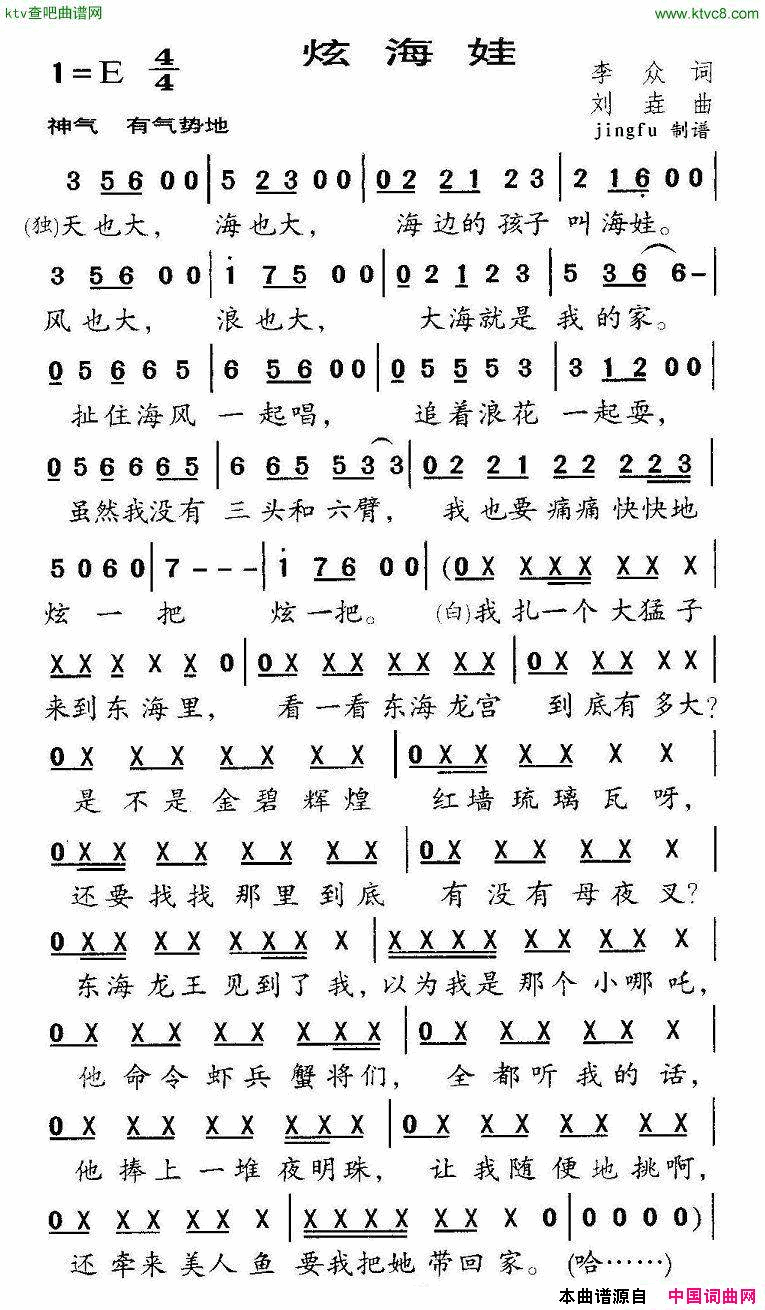 ktv查吧曲谱网
www.ktvc8.com
炫海娃
1=E 4/4
李众词
刘垚曲
jingfu 制谱
神气 有气势地
3 5 6 0 0 | 5 2 3 0 0 | 0 2 2 1 2 3 | 2 1 6 0 0 |
(独)天也大， 海也大， 海边的孩子 叫海娃。
3 5 6 0 0 | 1 7 5 0 0 | 0 2 1 2 3 | 5 3 6 6 – |
风也大， 浪也大， 大海就是 我的家。
0 5 6 6 5 | 6 5 6 0 0 | 0 5 5 5 3 | 3 1 2 0 0 |
扯住海风 一起唱， 追着浪花 一起耍，
0 5 6 6 6 5 | 6 6 5 5 3 3 | 0 2 2 1 2 2 2 2 3 |
虽然我没有 三头和六臂， 我也要痛痛快快地
5 0 6 0 | 7 - - - | 1 7 6 0 0 | (0 X X X X X X X |
炫一把 炫一把。 (白)我扎一个大猛子
X X X X X 0 | 0 X X X X X X X | 0 X X X X X |
来到东海里， 看一看东海龙宫 到底有多大？
0 X X X X X X X | 0 X X X X X X |
是不是金碧辉煌 红墙琉璃瓦呀，
0 X X X X X X X X | 0 X X X X X |
还要找找那里到底 有没有母夜叉？
0 X X X X X X X X | X X X X X X X X X X |
东海龙王见到了我，以为我是那个小哪吒，
0 X X X X X X X X | 0 X X X X X |
他命令虾兵蟹将们， 全都听我的话，
0 X X X X X X X X | 0 X X X X X X |
他捧上一堆夜明珠， 让我随便地挑啊，
0 X X X X X | X X X X X X X 0 | 0 0 0 0) |
还牵来美人鱼 要我把她带回家。 (哈……)
本曲谱源自 中国词曲网